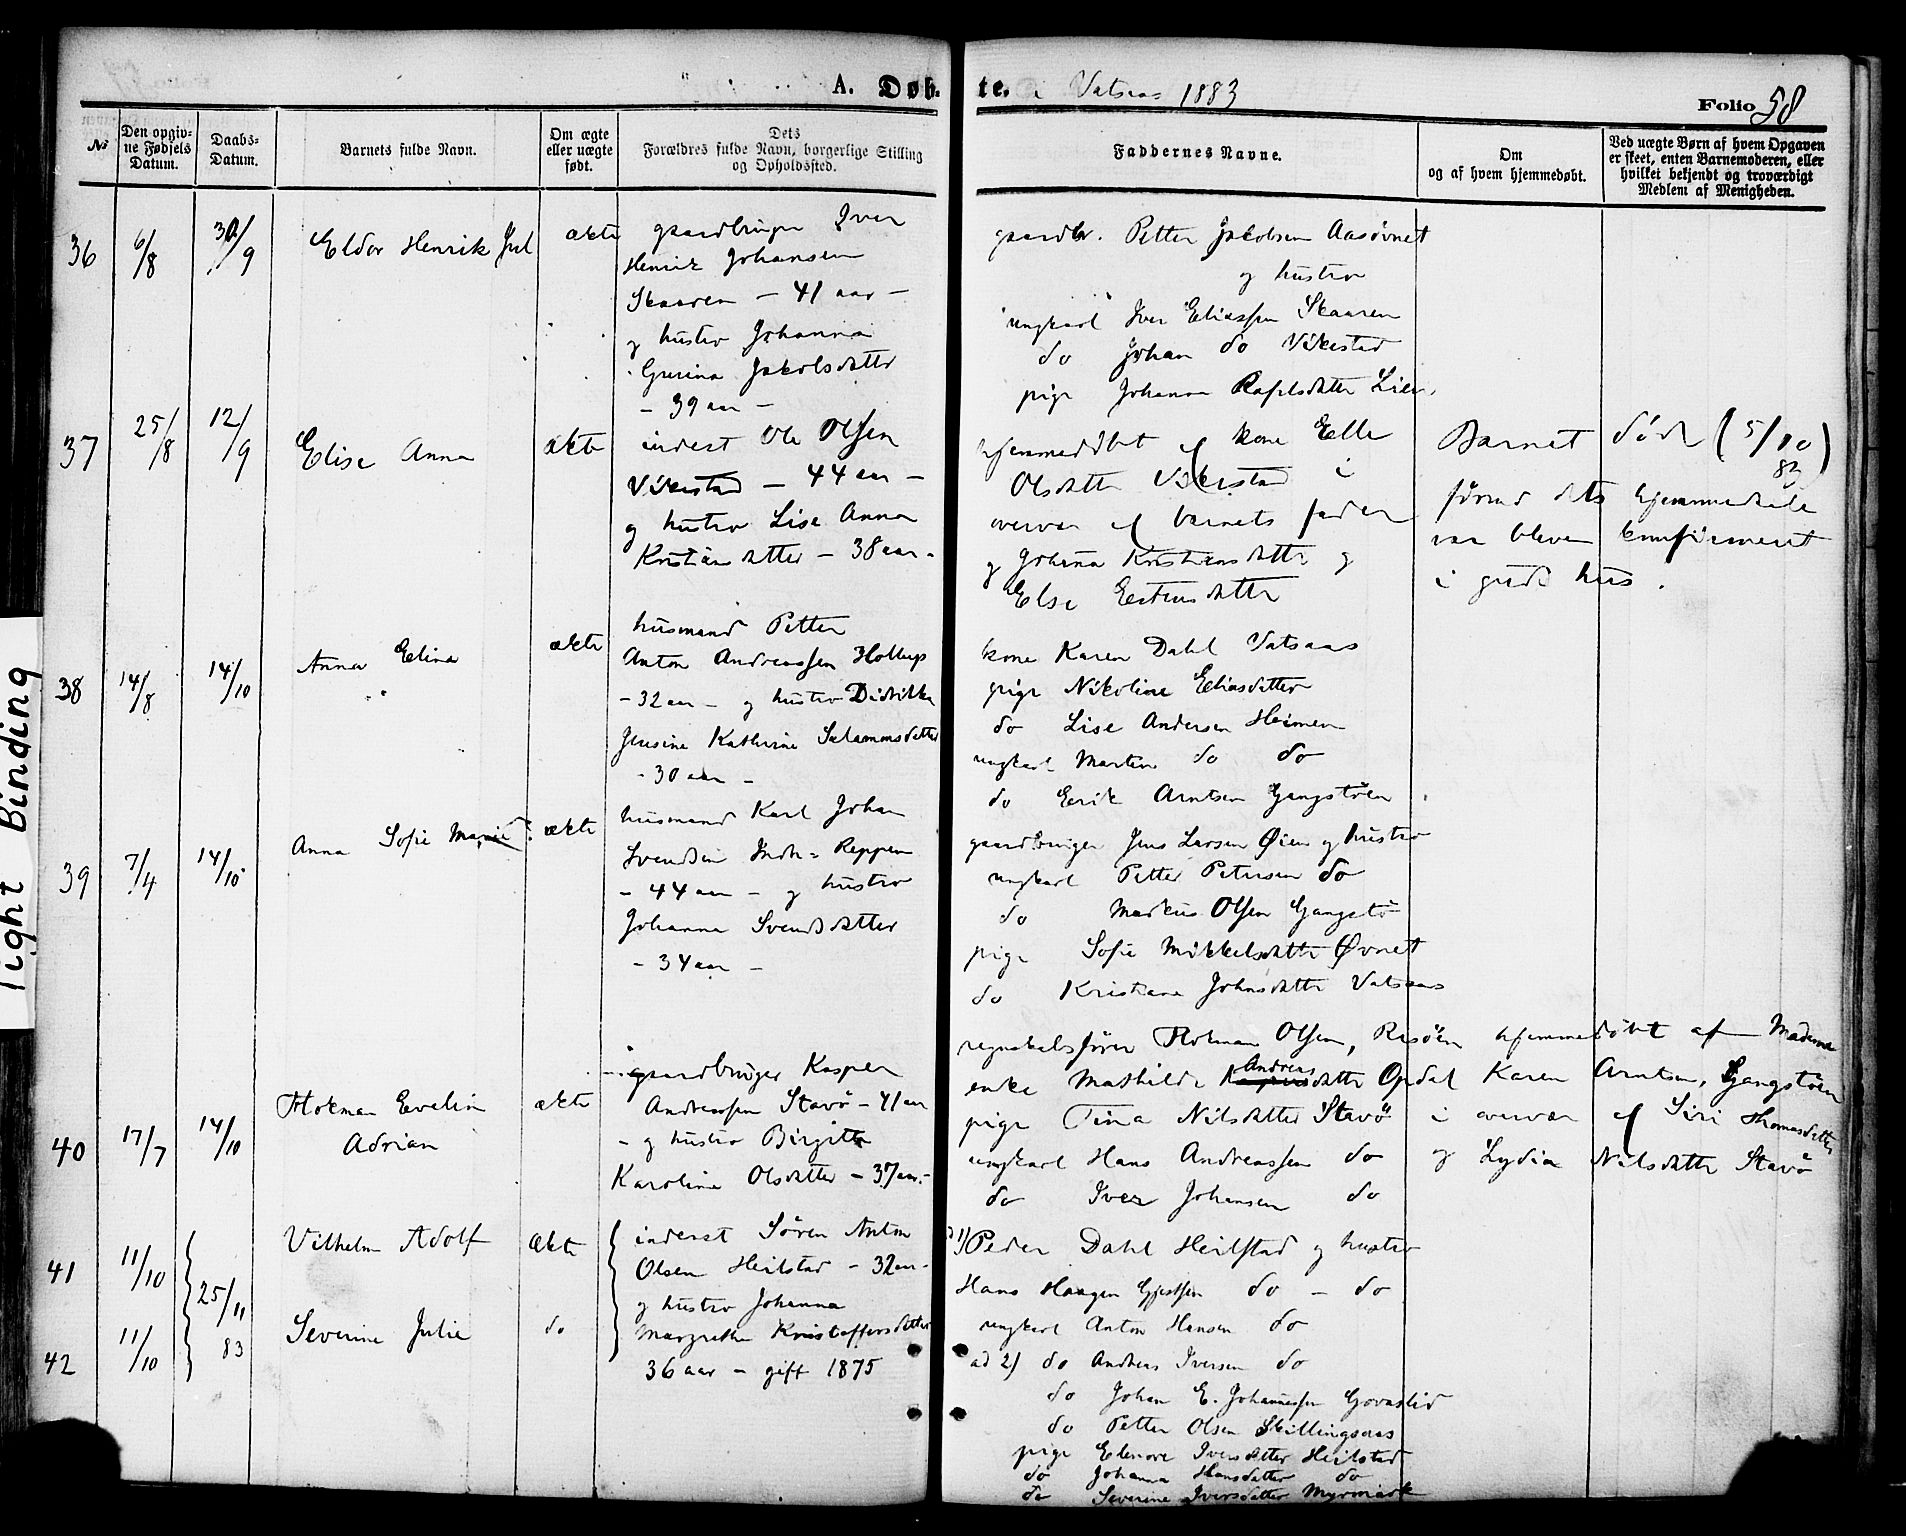 A. Døbte. i Vatsaas 1883
Folio 58
№
Den opgivne Fødsels Datum.
Daabs-Datum.
Barnets fulde Navn.
Om ægte eller uægte født.
Dets Forældres fulde Navn, borgerlige Stilling og Opholdssted.
Faddernes Navne.
Om og af hvem hjemmedøbt.
Ved uægte Børn af hvem Opgaven er skeet, enten Barnemoderen, eller hvilket bekjendt og troværdigt Medlem af Menigheden.
36 6/8 30/9 Eldor Henrik Jul ækte
gaardbruger Iver
Henrik Johansen
Skaaren – 41 aar –
og hustro Johanna
Jakobsdatter
– 39 aar –
gaardbr. Petter Jakobsen Aasøvnet
og hustro
ungkarl Iver Eliassen Skaaren
do Johan do Vikestad
pige Johanna
37 25/8 12/9 Elise Anna ækte
inderst Ole Olsen
Vikestad – 44 aar –
og hustro Lise Anna
Kristiansdatter – 38 aar –
hjemmedøbt af kone Elle
Olsdatter Vikestad i
overvær af barnets fader
og Johanna Kristiansdatter og
Else Estensdatter
Barnet døde (5/10 83)
førend dets hjemmedaab
var bleven konfirmeret
i guds hus.
38 14/8 14/10 Anna Elina ækte
husmand Petter
Anton Andreassen Holtup
– 32 aar – og hustro Didrikke
Jensine Kathrine Salamonsdatter
– 30 aar –
kone Karen Dahl Vatsaas
pige Nikoline Eliasdatter
do Lise Andersen Heimen
ungkarl Martin do do
do Eerik Arntsen Gangstøen
39 7/4 14/10 Anna Sofie Marie ækte
husmand Karl Johan
Svendsen Indr. Reppen
– 44 aar – og hustro
Johanna Svendsdatter
– 34 aar –
gaardbruger Jens Larsen Øien og hustro
ungkarl Petter Petersen do
do Markus Olsen Gangstø
pige Sofie Mikkelsdatter Øvnet
do Kristiane Johnsdatter Vatsaas
40 17/7 14/10 Hokman Evelin
Adrian
ækte
gaardbruger Kasper
Andreassen Stavø – 41 aar
– og hustro Birgitte
Karoline Olsdatter – 37 aar –
regnskabsfører Hokman Olsen, Risøen
enke Mathilde Andreasdatter Opdal
pige Tina Nilsdatter Stavø
ungkarl Hans Andreassen do
do Iver Johansen do
hjemmedøbt af Madame
Karen Arntsen, Gangstøen
i overvær af Siri Thomasdatter
og Lydia Nilsdatter Stavø
41 11/10 Vilhelm Adolf ækte
25/11 83
42 11/10 Severine Julie do
inderst Søren Anton
Olsen Heilstad – 32 aar –
og hustro Johanna
Margrethe Kristoffersdatter
36 aar – gift 1875
ad 1) Peder Dahl Heilstad og hustro
Hans Haagen Gjertsen do – do
ungkarl Anton Hansen do
ad 2) do Andreas Iversen do
do Johan E. Johannessen Govaslid
do Petter Olsen Skillingsaas
pige Elenore Iversdatter Heilstad
do Johanna Hansdatter do
do Severine Iversdatter Myrmark
Tight Binding